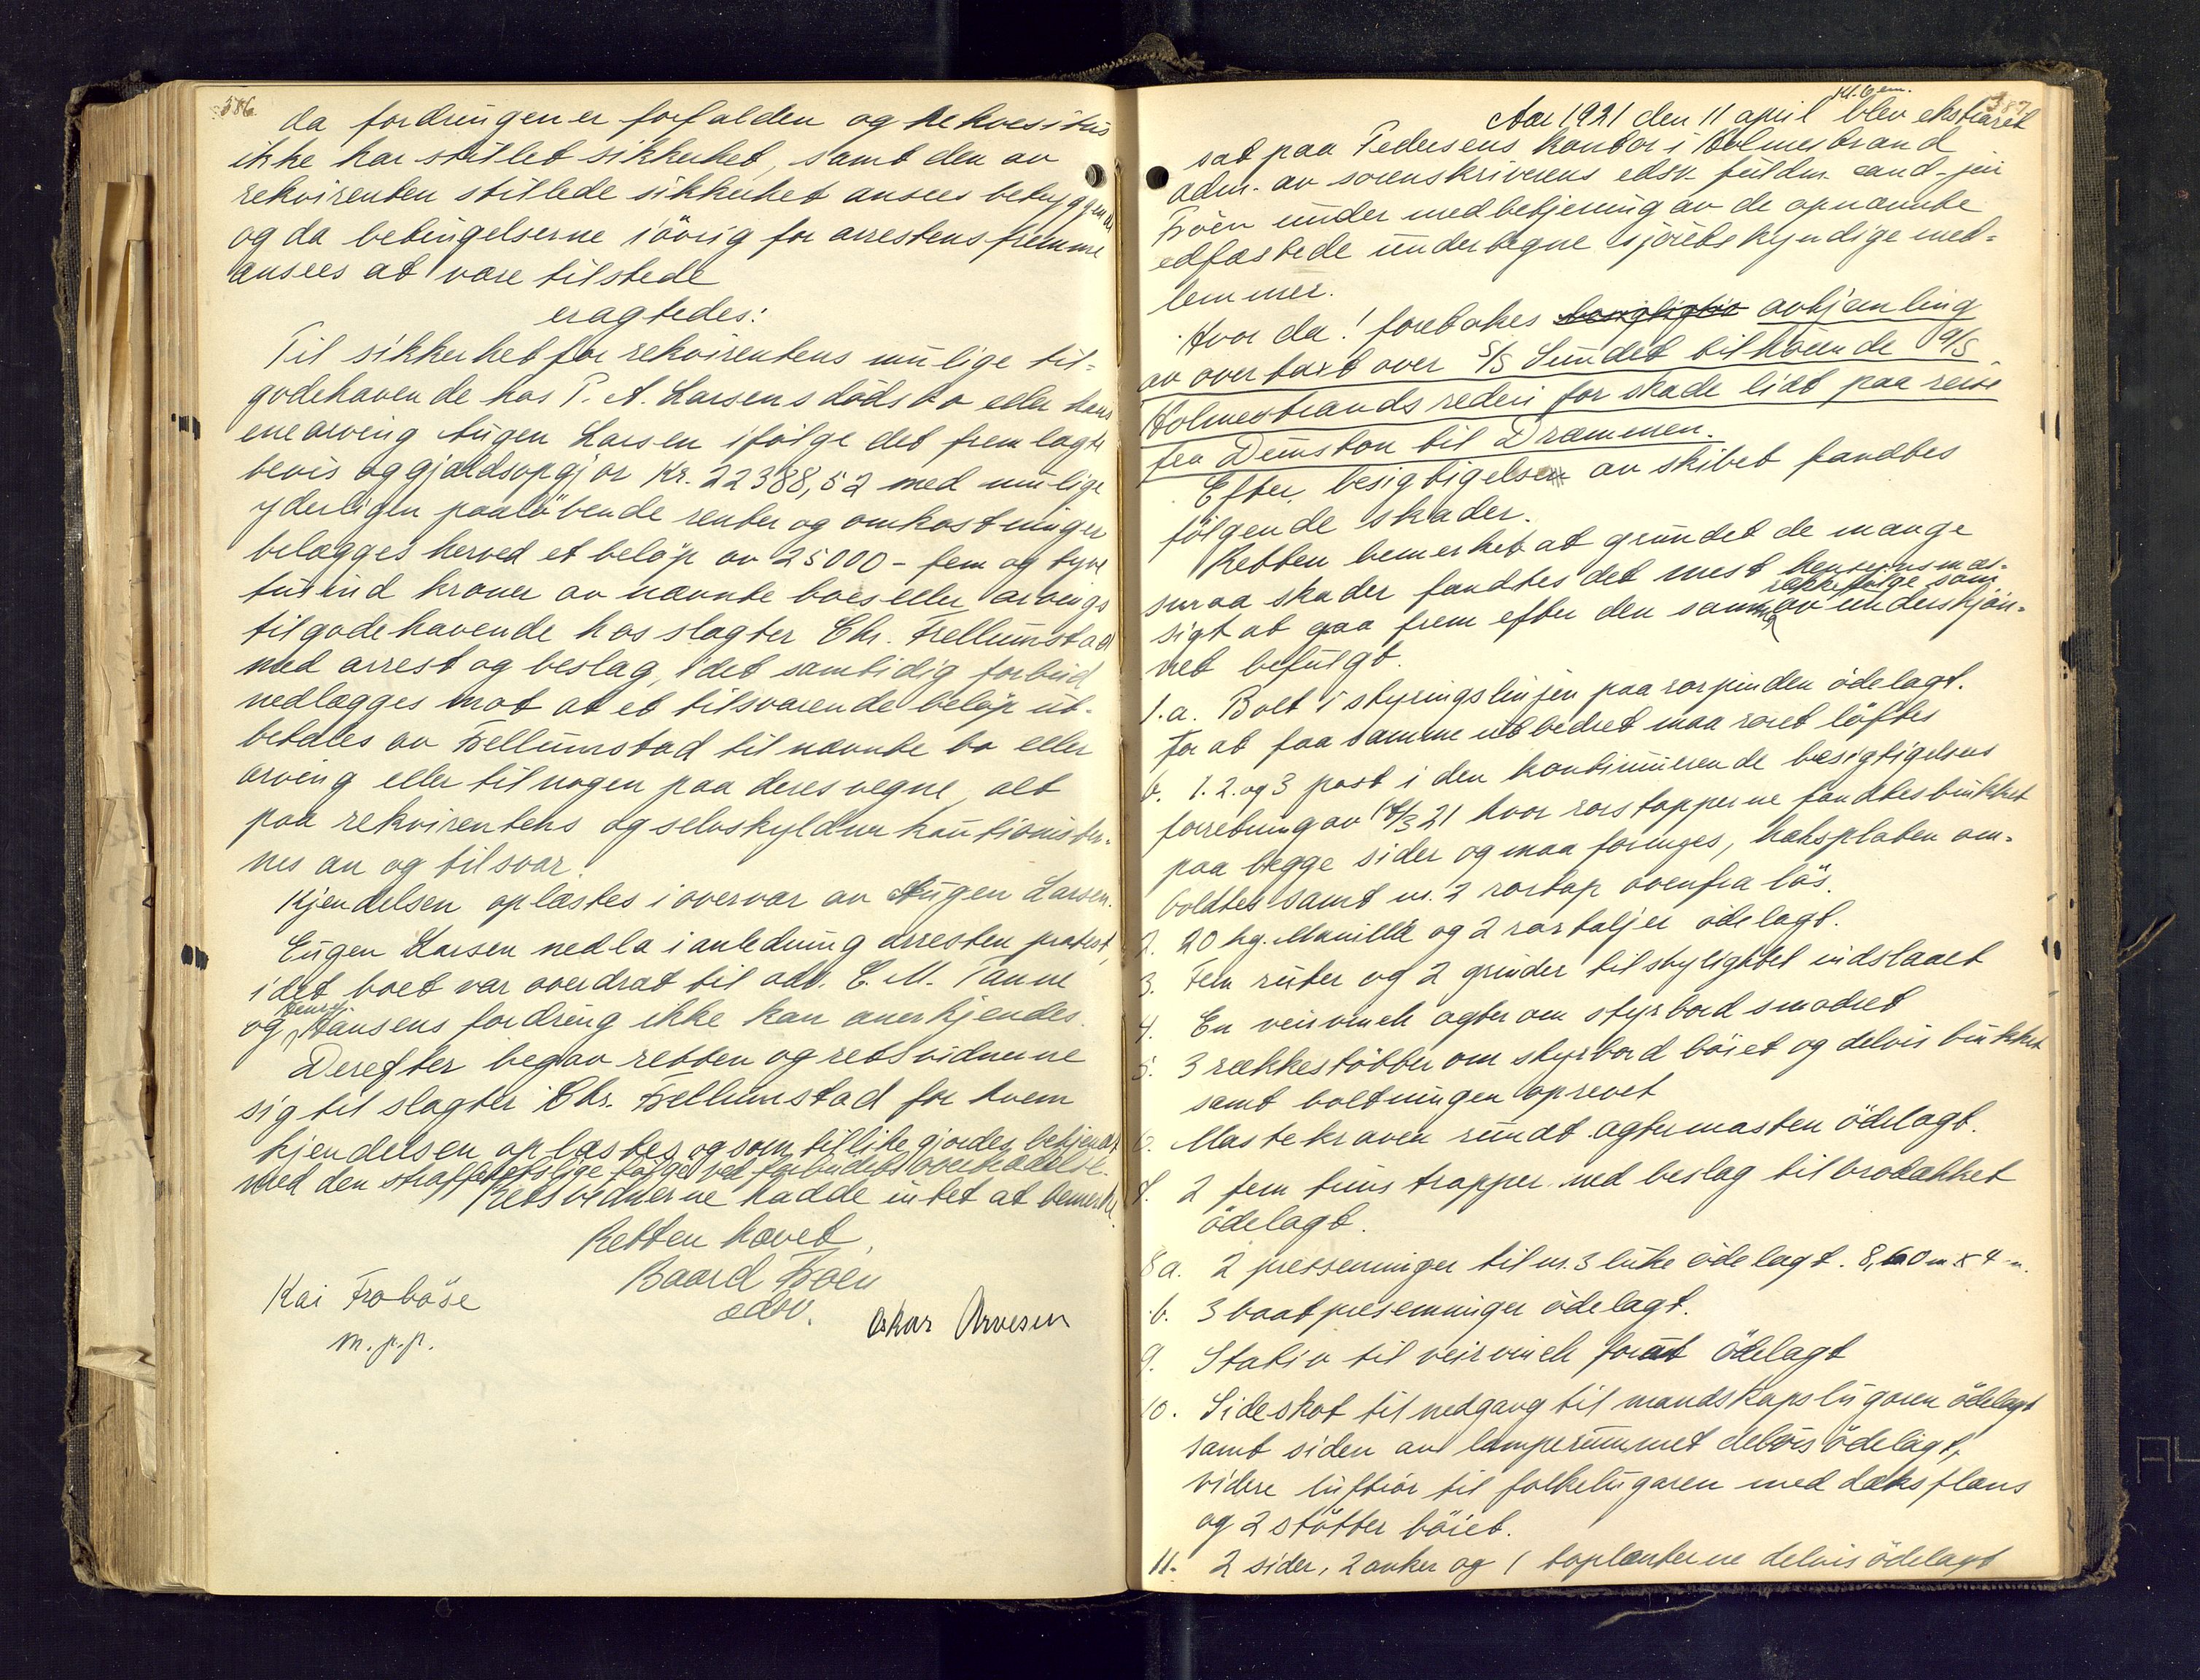 386
da fordringen er forfalden og rekvisitus
ikke har stillet sikkerhet, samt den av
rekvirenten stillede sikkerhet ansees betryggende
og da betingelserne iövrig for arrestens fremme
ansees at være tilstede
eragtedes:
Til sikkerhet for rekvirentens mulige til-
godehavende hos P. A. Larsens dödsbo eller hans
enearving Eugen Larsen ifölge det fremlagte
bevis og gjældsopgjör Kr. 22388,52 med mulige
yderligen paalöbende renter og omkostninger
belægges herved et belöp av 25000 - fem og tyve
tusind kroner av nævnte boes eller arvings
tilgodehavende hos slagter Chr. Trellumstad
med arrest og beslag, idet samtidig forbud
nedlægges mot at et tilsvarende belöp ut-
betales av Trellumstad til nævnte bo eller
arving eller til nogen paa deres vegne, alt
paa rekvirentens og selvskyldner kautionister-
nes an og tilsvar.
Kjendelsen oplæstes i overvær av Eugen Larsen.
Eugen Larsen nedla i anledning arresten protest,
idet boet var overdrat til adv. C. M. Tanne
og Henry Hansens fordring ikke kan anerkjendes.
Derefter begav retten og retsvidnerne
sig til slagter Chr. Trellumstad for hvem
kjendelsen oplæstes og som tillike gjordes bekjendt
med den strafferetslige fölge ved forbudets overtrædelse.
Retsvidnerne hadde intet at bemerke.
Retten hævet,
Baard Broen
edsv.
Kai Froböse
m.p.p.
Oskar Arvesen
387
kl. 6 em.
Aar 1921 den 11 april blev ekstraret
sat paa Pedersens kontor i Holmestrand
adm. av sorenskriverens edsv. fuldm. cand. jur.
Broen under medbetjening av de opnævnte
edfæstede undertegnede sjöretskyndige med-
lemmer.
Hvor da! foretokes avhjemling
av overtaxt over S/S Sundet tilhörende A/S
Holmestrands rederi for skade lidt paa reise
fra Dunston til Drammen.
Efter besigtigelsen av skibet fandtes
fölgende skader.
Retten bemerket at grundet de mange
smaa skader fandtes det mest hensigtsmæs-
sigt at gaa frem efter den samme rækkefölge som av underskjön-
net befulgt.
1.a. Bolt i styringslinjen paa rorpinden ödelagt.
For at faa samme utbedret maa roret löftes
b. 1. 2. og 3 post i den kontinuerende besigtigelses
forretning av 14/3 21 hvor rorstapperne fandtes bukket
paa begge sider og maa fornyes, haksplaten om-
boltes samt nr. 2 rortap ovenfra lös.
2. 20 kg. Manilla og 2 rortaljer ödelagt.
3. Fem ruter og 2 grinder til skylightet indslaaet
4. En veirvinch agter om styrbord smadret
5. 3 rækkestötter om styrbord böiet og delvis bukket
samt boltningen oprevet
6. Mastekraven rundt agtermasten ödelagt.
7. 2 fem trins trapper med beslag til brodækket
ödelagt.
8a. 2 pressenninger til nr. 3 luke ödelagt. 8,60 m x 4 m.
b. 3 baatpresenninger ödelagt.
9. Stativ til veirvinch forut ödelagt
10. Sideskot til nedgang til mandskapslugaren ödelagt
samt siden av lamperummet delvis ödelagt,
videre luftrör til folkelugaren med dæksflans
og 2 stötter böiet.
11. 2 sider, 2 anker og 1 toplanterne delvis ödelagt